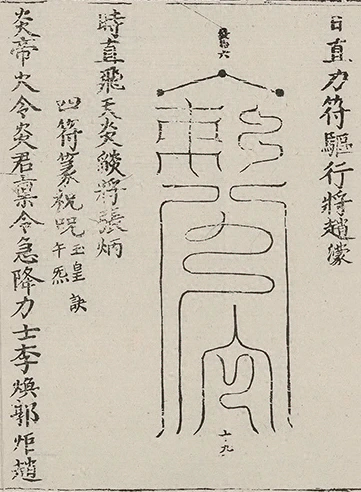 日直力符驅行將趙濛
上九
時直飛天炎燄將張炳
四符篆祝咒
玉皇訣
午炁
炎帝火令炎君稟令急降力士李煥郭炬趙